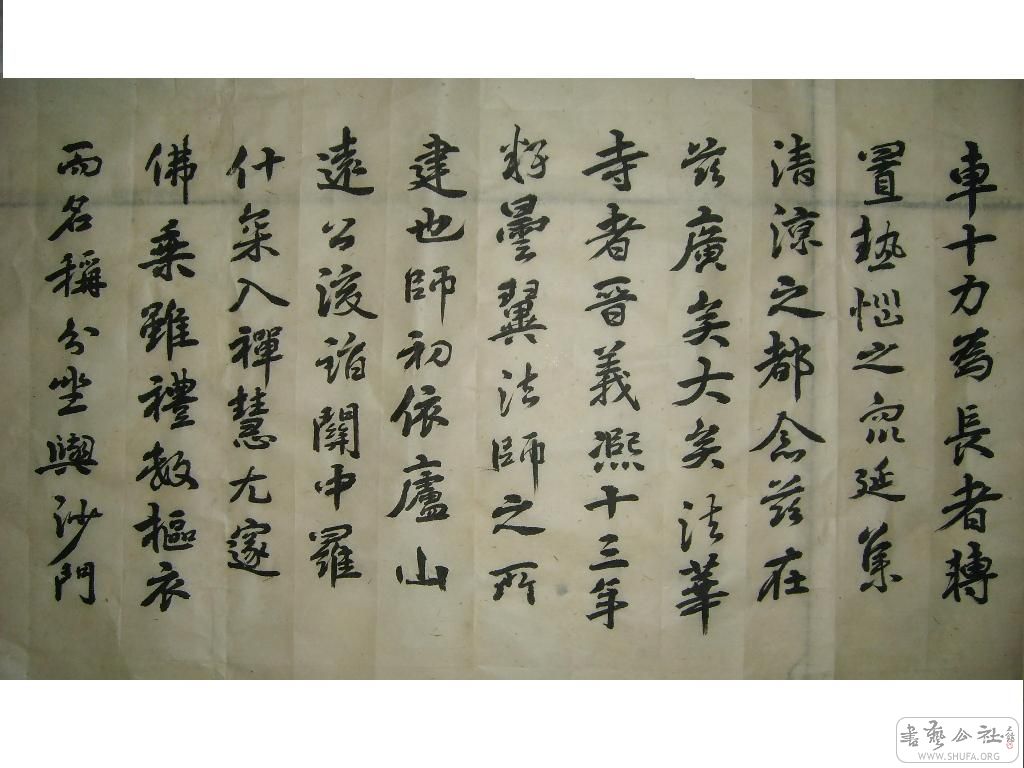 車十力為長者轉
置熱惱之眾延集
清涼之都念茲在
茲廣矣大矣法華
寺者晉義熙十三年
釋曇翼法師之所
建也師初依廬山
遠公後詣關中羅
什罙入禪慧尤邃
佛乘雖禮數樞衣
而名稱分坐與沙門
書藝公社
WWW.SHUFA.ORG